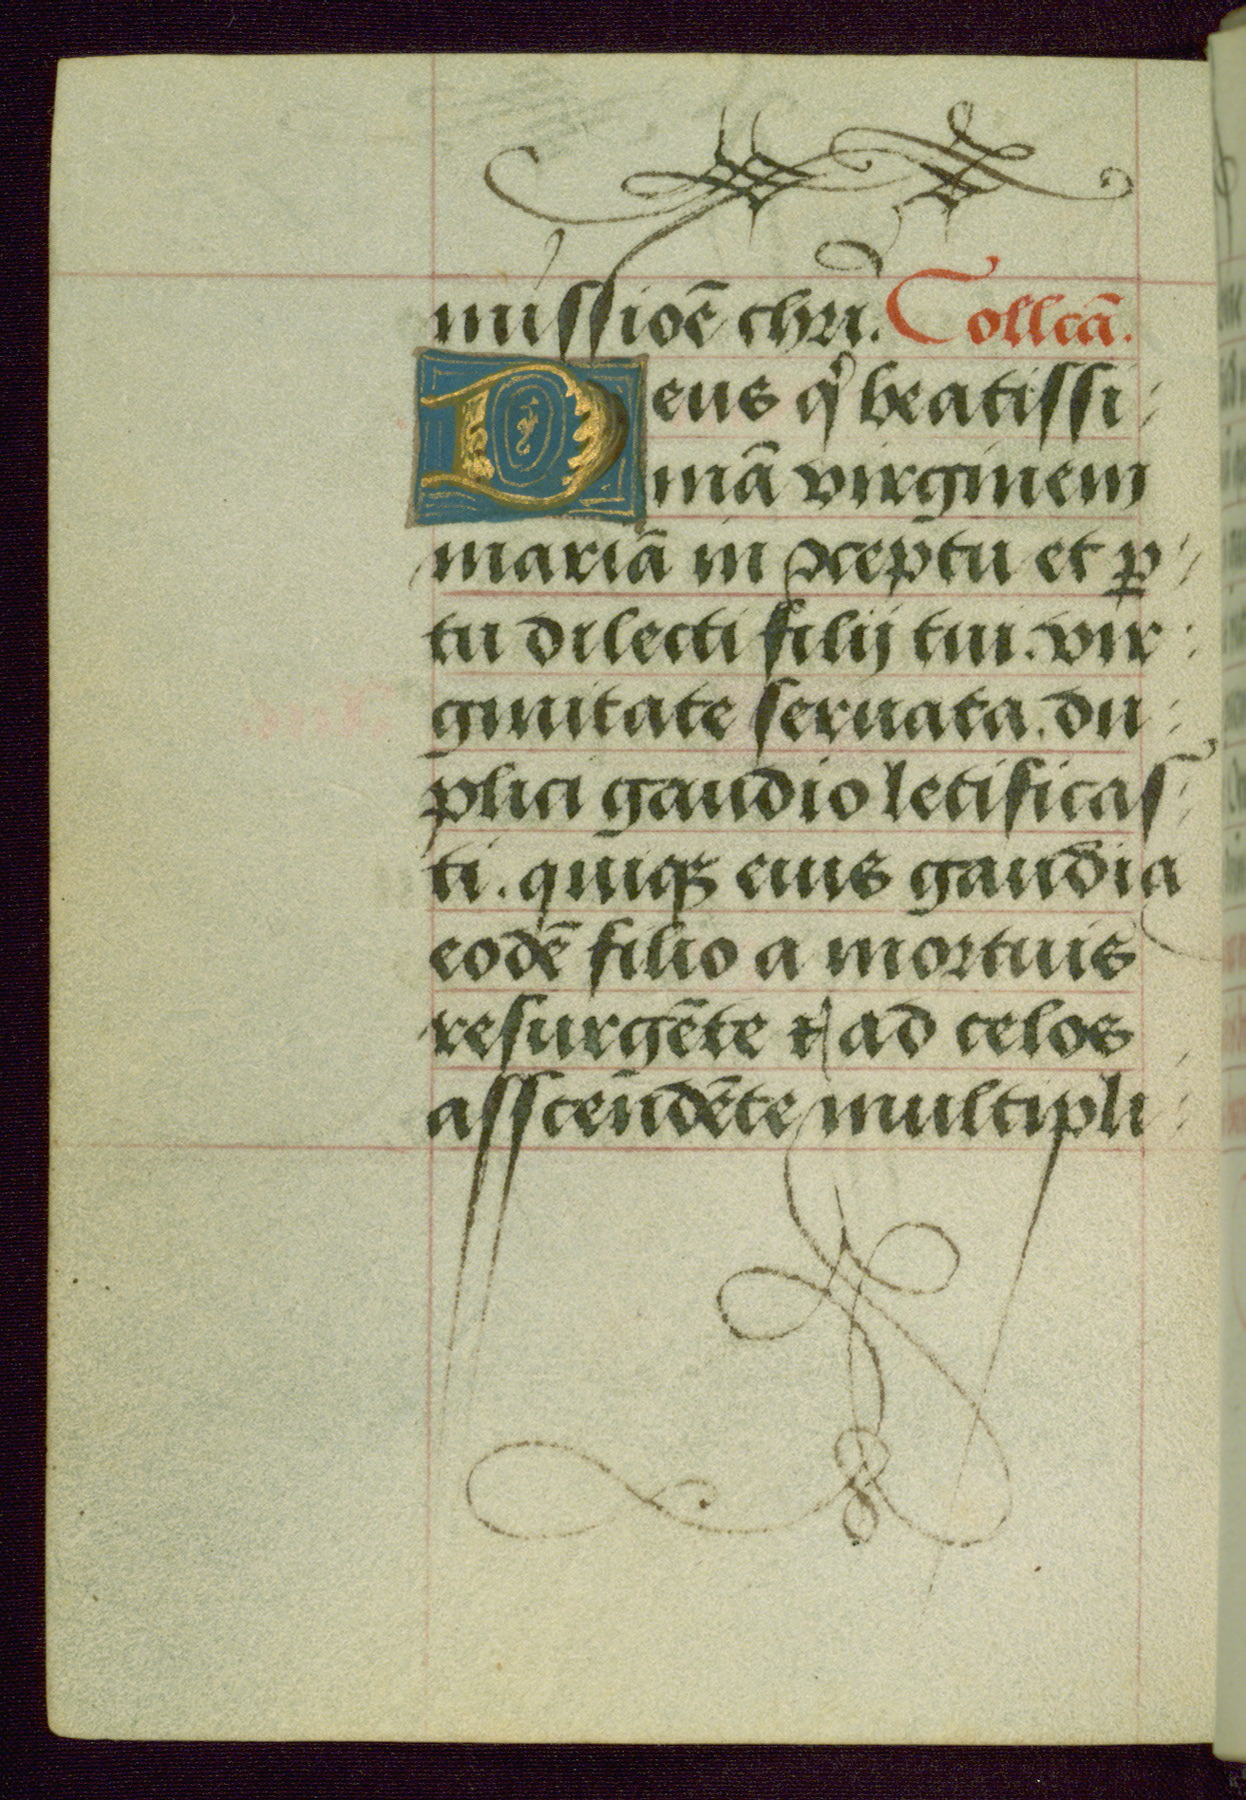 missioē chri. Collcā.
Deus qͥ beatissi-
mā virginem
mariā in ↄceptu et ꝑ-
tu dilecti filij tui. vir-
ginitate seruata. du-
plici gaudio letificas-
ti. quiqꝫ eius gaudia
eodē filio a mortuis
resurgēte ⁊ ad celos
asscēndēte multipli-